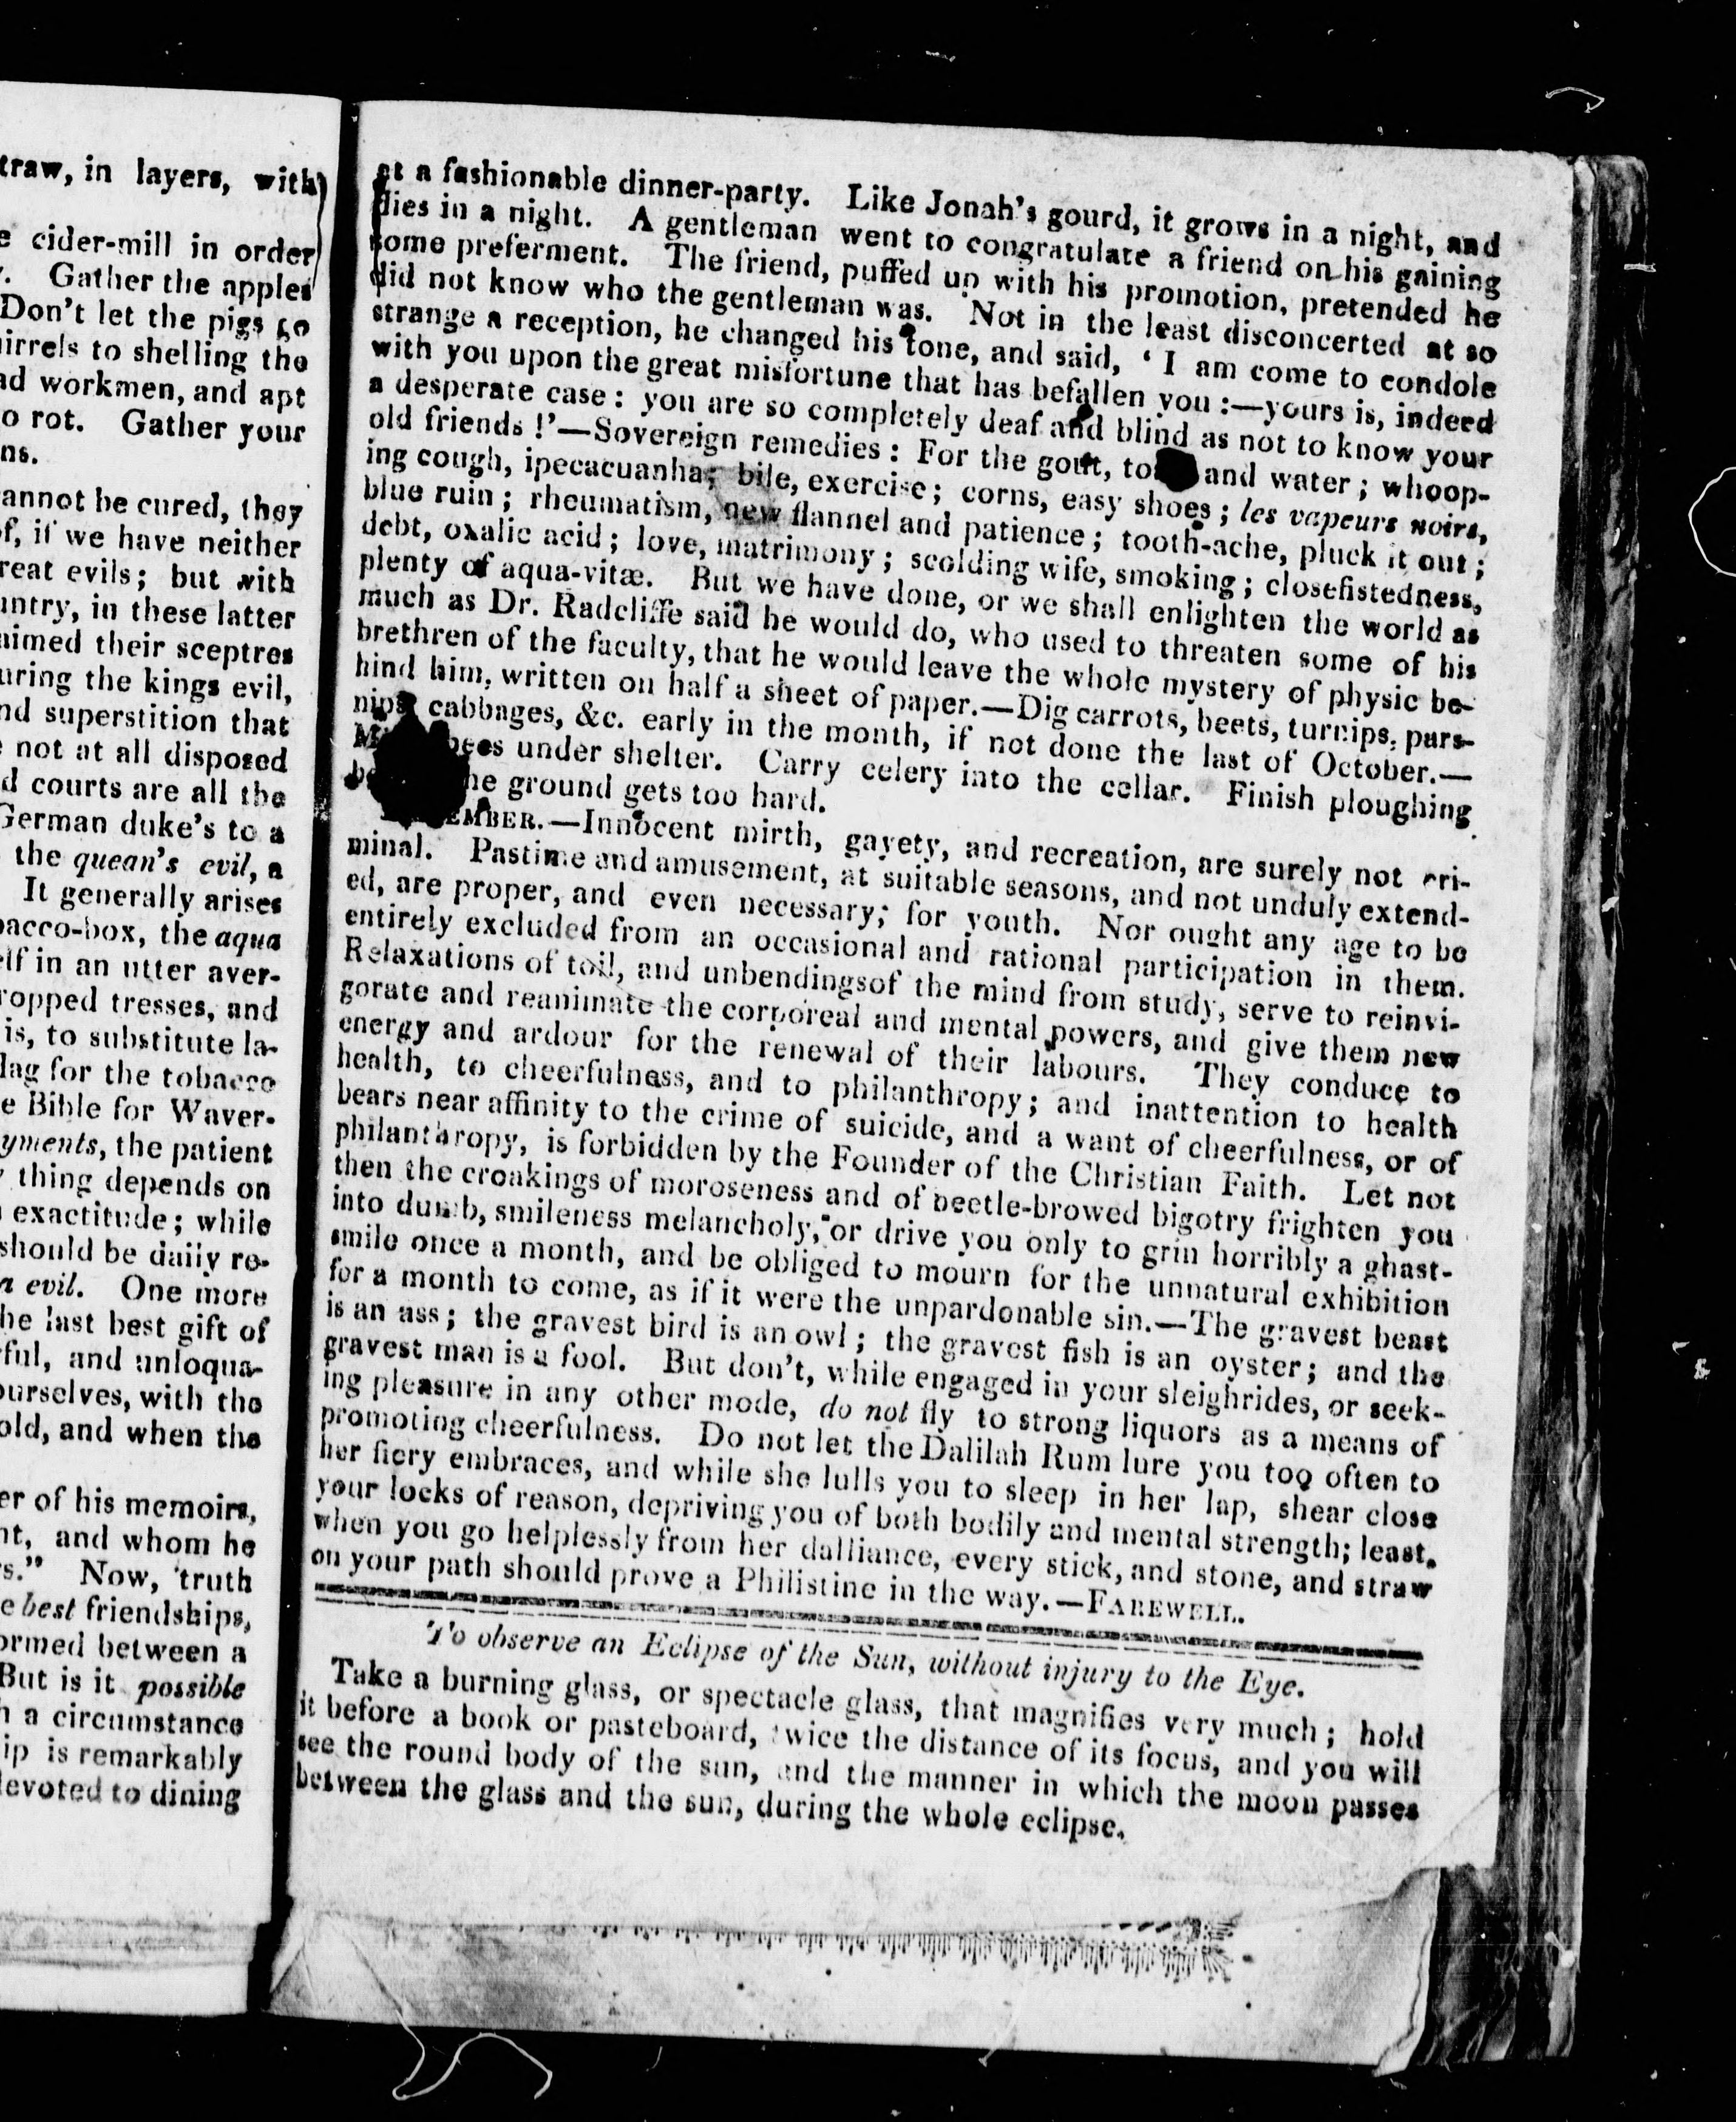 traw, in layers, with
e cider-mill in order
Gather the apples
Don't let the pigs go
uirrels to shelling the
ad workmen, and apt
o rot. Gather your
ns.
annot be cured, they
of, if we have neither
reat evils; but with
untry, in these latter
aimed their sceptres
uring the kings evil,
nd superstition that
e not at all disposed
d courts are all the
German duke's to a
the quean's evil, a
It generally arises
bacco-box, the aqua
elf in an utter aver-
ropped tresses, and
is, to substitute la-
lag for the tobacco
e Bible for Waver-
yments, the patient
y thing depends on
exactitude; while
should be daily re-
n evil. One more
he last best gift of
ful, and unloqua-
ourselves, with the
old, and when the
er of his memoirs,
nt, and whom he
s." Now, truth
e best friendships,
ormed between a
But is it possible
h a circumstance
ip is remarkably
devoted to dining
at a fashionable dinner-party. Like Jonah's gourd, it grows in a night, and
dies in a night. A gentleman went to congratulate a friend on his gaining
some preferment. The friend, puffed up with his promotion, pretended he
did not know who the gentleman was. Not in the least disconcerted at so
strange a reception, he changed his tone, and said, 'I am come to condole
with you upon the great misfortune that has befallen you:—yours is, indeed
a desperate case: you are so completely deaf and blind as not to know your
old friends!'—Sovereign remedies: For the gout, and water; whoop-
ing cough, ipecacuanha; bile, exercise; corns, easy shoes; les vapeurs noirs,
blue ruin; rheumatism, new flannel and patience; tooth-ache, pluck it out;
debt, oxalic acid; love, matrimony; scolding wife, smoking; closefistedness,
plenty of aqua-vitæ. But we have done, or we shall enlighten the world as
much as Dr. Radcliffe said he would do, who used to threaten some of his
brethren of the faculty, that he would leave the whole mystery of physic be-
hind him, written on half a sheet of paper.—Dig carrots, beets, turnips, pars-
nips, cabbages, &c. early in the month, if not done the last of October.—
bees under shelter. Carry celery into the cellar. Finish ploughing
he ground gets too hard.
EMBER.—Innocent mirth, gayety, and recreation, are surely not cri-
minal. Pastime and amusement, at suitable seasons, and not unduly extend-
ed, are proper, and even necessary, for youth. Nor ought any age to be
entirely excluded from an occasional and rational participation in them.
Relaxations of toil, and unbendingsof the mind from study, serve to reinvi-
gorate and reanimate the corporeal and mental powers, and give them new
energy and ardour for the renewal of their labours. They conduce to
health, to cheerfulness, and to philanthropy; and inattention to health
bears near affinity to the crime of suicide, and a want of cheerfulness, or of
philanthropy, is forbidden by the Founder of the Christian Faith. Let not
then the croakings of moroseness and of beetle-browed bigotry frighten you
into dumb, smileness melancholy, or drive you only to grin horribly a ghast-
smile once a month, and be obliged to mourn for the unnatural exhibition
for a month to come, as if it were the unpardonable sin.—The gravest beast
is an ass; the gravest bird is an owl; the gravest fish is an oyster; and the
gravest man is a fool. But don't, while engaged in your sleighrides, or seek-
ing pleasure in any other mode, do not fly to strong liquors as a means of
promoting cheerfulness. Do not let the Dalilah Rum lure you too often to
her fiery embraces, and while she lulls you to sleep in her lap, shear close
your locks of reason, depriving you of both bodily and mental strength; least,
when you go helplessly from her dalliance, every stick, and stone, and straw
on your path should prove a Philistine in the way.—FAREWELL.
To observe an Eclipse of the Sun, without injury to the Eye.
Take a burning glass, or spectacle glass, that magnifies very much; hold
it before a book or pasteboard, twice the distance of its focus, and you will
see the round body of the sun, and the manner in which the moon passes
between the glass and the sun, during the whole eclipse.